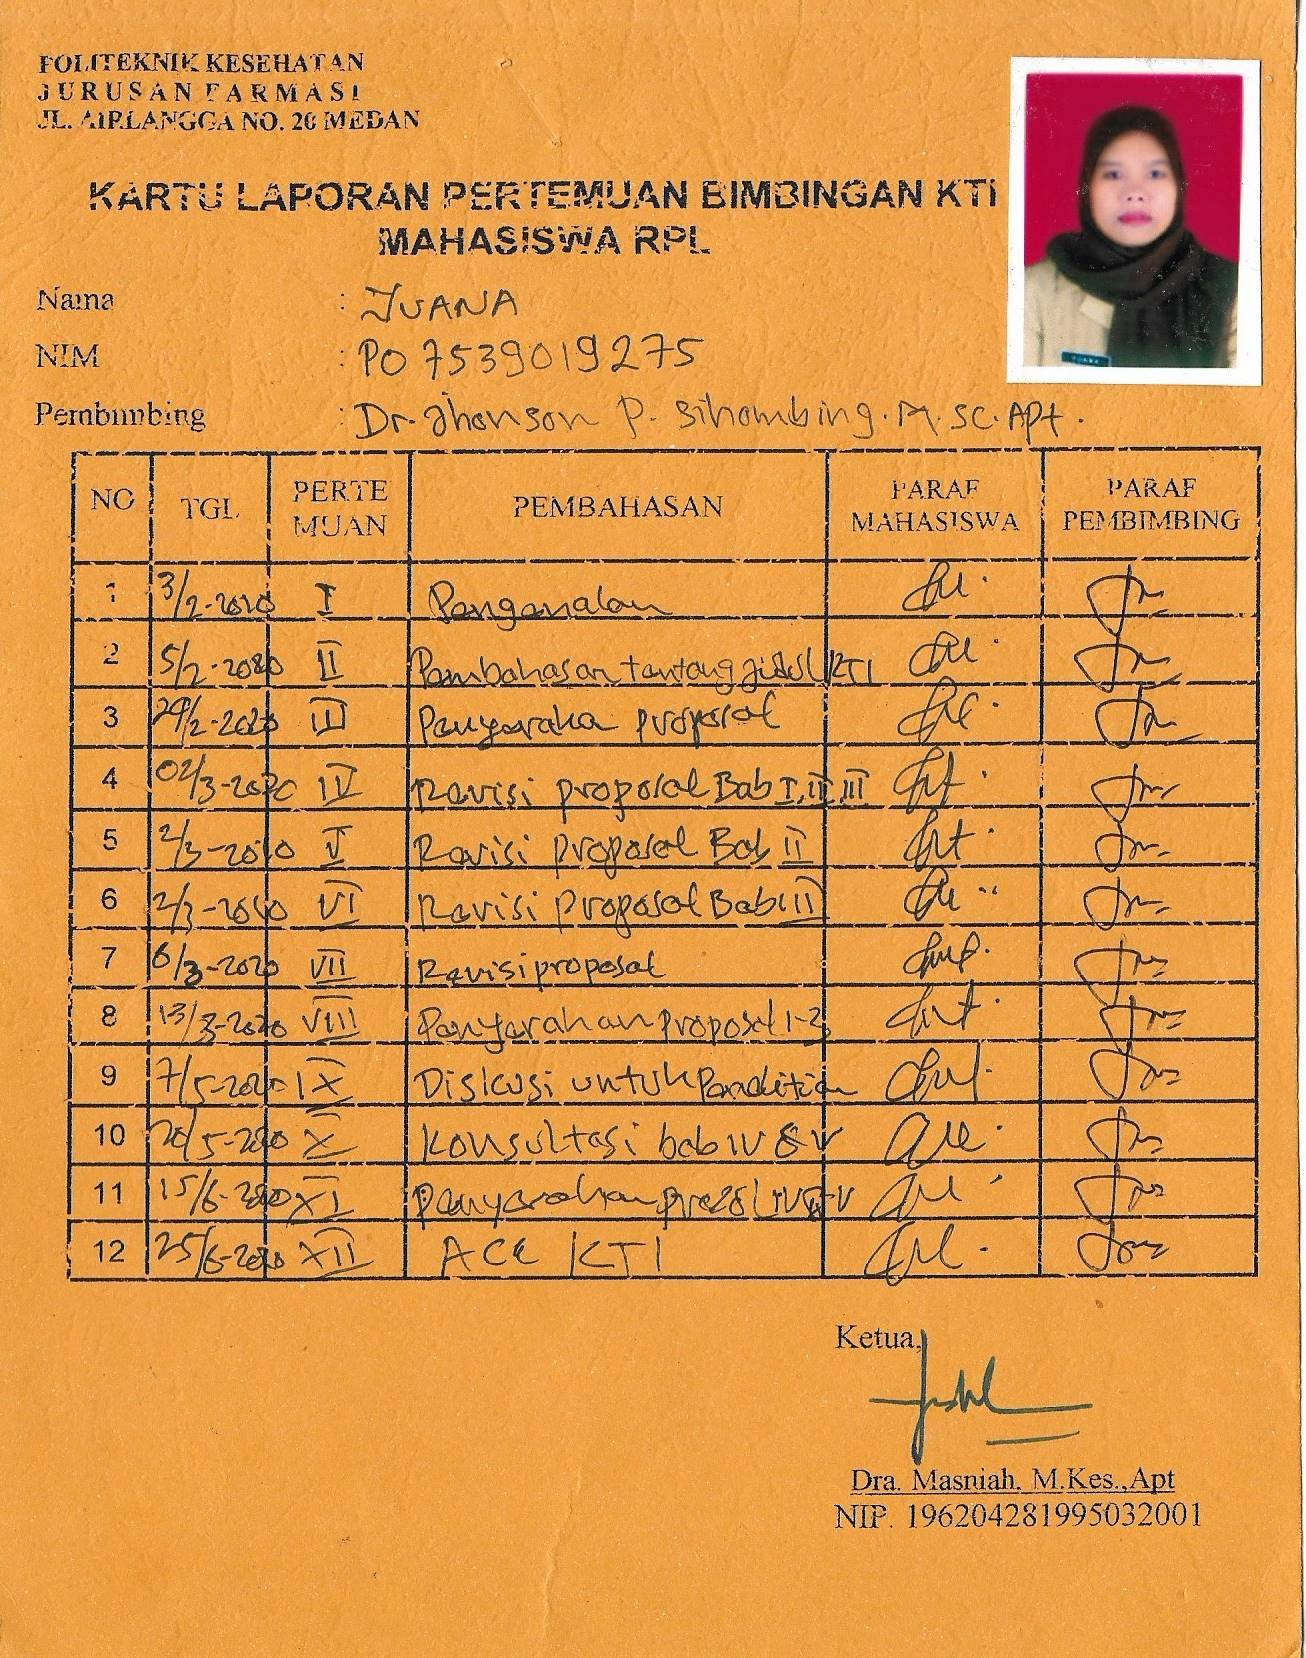 POLITEKNIK KESEHATAN
JURUSAN FARMASI
JL. AIRLANGGA NO. 20 MEDAN
KARTU LAPORAN PERTEMUAN BIMBINGAN KTI
MAHASISWA RPL
Nama : JUANA
NIM : PO 7539019275
Pembimbing : Dr. Jhonson P. Sihombing. M. SC. Apt.
NO TGL PERTE MUAN PEMBAHASAN PARAF MAHASISWA PARAF PEMBIMBING
1 3/2-2020 I Pengenalan
2 5/2-2020 II Pembahasan tentang judul KTI
3 29/2-2020 III proposal
4 02/3-2020 IV Revisi proposal Bab I, II, III
5 2/3-2020 V Revisi proposal Bab II
6 2/3-2020 VI Revisi proposal Bab III
7 6/3-2020 VII Revisi proposal
8 13/3-2020 VIII Penyerahan proposal 1-3
9 7/5-2020 IX Diskusi untuk
10 20/5-2020 X Konsultasi bab IV & V
11 15/6-2020 XI Penyerahan
12 25/6-2020 XII ACC KTI
Ketua,
Dra. Masniah, M.Kes.,Apt
NIP. 196204281995032001